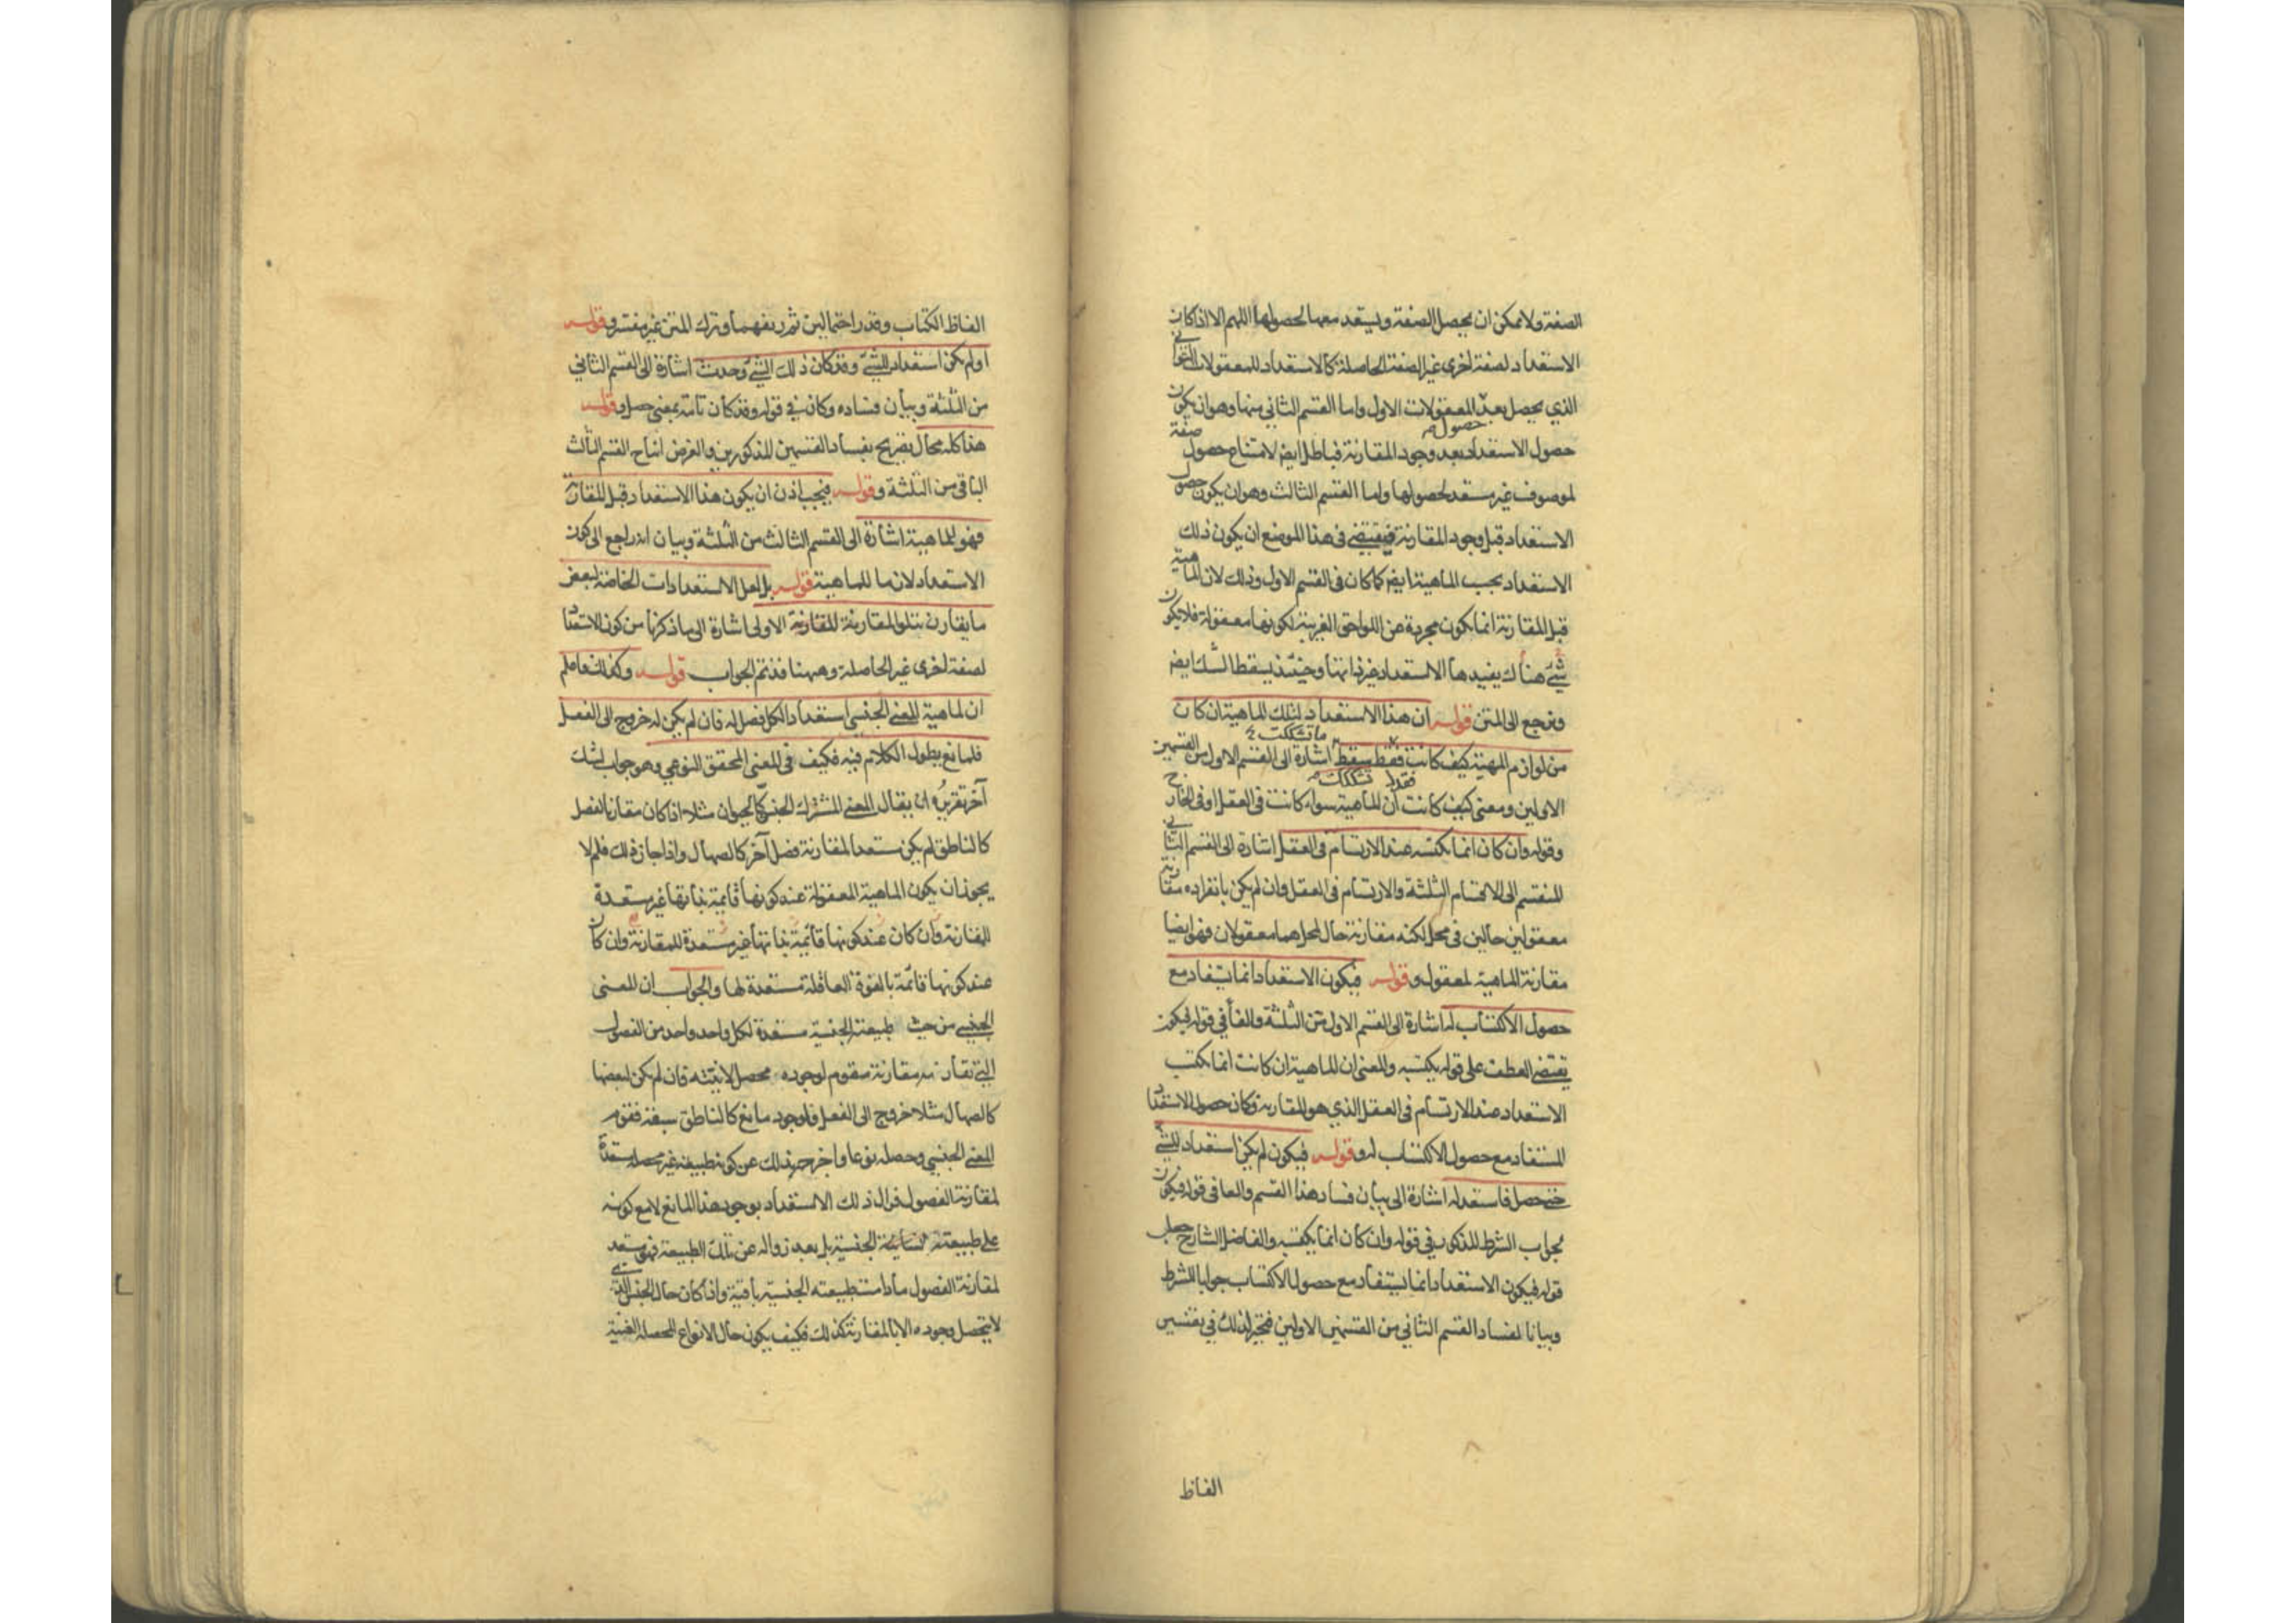 الصفة ولا يمكن ان يحصل الصفة ويستعد معها لحصولها اللهم الا اذا كان
الاستعداد لصفة اخرى غير الصفة الحاصلة كالاستعداد للمعقولات الثواني
الذي يحصل بعد المعقولات الاول واما القسم الثاني منها وهو ان يكون
حصول
حصول الاستعداد بعد وجود المقارنة فباطل ايض لامتناع حصول صفة
لموصوف غير مستعد لحصولها واما القسم الثالث وهو ان يكون حصول
الاستعداد قبل وجود المقارنة فيقتضي في هذا الموضع ان يكون ذلك
الاستعداد بحسب الماهية ايض كما كان في القسم الاول وذلك لان الماهية
قبل المقارنة انما يكون مجردة عن اللواحق الغريبة لكونها معقولة فلا يكون
شيء هناك يفيدها الاستعداد غير ذاتها وحينئذ يسقط الشك ايض
ونرجع الى المتن قوله ان هذا الاستعداد لتلك الماهية ان كان
ما تشككت
من لوازم المهية كيف كانت فقط سقط اشارة الى القسم الاول من القسمين
فقد تشككت
الاولين ومعنى كيف كانت ان الماهية سواء كانت في العقل او في الخارج
وقوله وان كان انما يكتسبه عند الارتسام في العقل اشارة الى القسم الثاني
المنقسم الى الاقسام الثلثة والارتسام في العقل وان لم يكن بانفراده مقارنة
معقولين حالين في محل لكنه مقارنة حال لمحل هما معقولان فهو ايضا
مقارنة الماهية لمعقول وقوله فيكون الاستعداد انما يستفاد مع
حصول الاكتساب له اشارة الى القسم الاول من الثلثة والفاء في قوله فيكون
يقتضي العطف على قوله يكتسبه والمعنى ان الماهية ان كانت انما يكتسب
الاستعداد عند الارتسام في العقل الذي هو المقارنة وكان حصول الاستعداد
المستفاد مع حصول الاكتساب له وقوله فيكون لم يكن استعداد للشيء
حتى حصل فاستعد له اشارة الى بيان فساد هذا القسم والفا في قوله فيكون
لجواب الشرط المذكور في قوله وان كان انما يكتسبه والفاضل الشارح جعل
قوله فيكون الاستعداد انما يستفاد مع حصول الاكتساب جوابا للشرط
وبيانا لفساد القسم الثاني من القسمين الاولين فتحير لذلك في تفسير
الفاظ
الفاظ الكتاب وقدر احتمالين ثم زيفهما وترك المتن غير مفسر وقوله
او لم يكن استعداد للشيء وقد كان ذلك الشيء وحدث اشارة الى القسم الثاني
من الثلثة وبيان فساده وكان في قوله وقد كان تامة بمعنى حصل وقوله
هذا كله محال تصريح بفساد القسمين المذكورين والغرض انتاج القسم الثالث
الباقي من الثلثة وقوله فيجب اذن ان يكون هذا الاستعداد قبل المقارنة
فهو للماهية اشارة الى القسم الثالث من الثلثة وبيان انه راجع الى كون
الاستعداد لازما للماهية قوله بل لعل الاستعدادات الخاصة لبعض
ما يقارن يتلو المقارنة للمقارنة الاولى اشارة الى ما ذكرنا من كون الاستعداد
لصفة اخرى غير الحاصلة وههنا قد تم الجواب قوله وكذلك فاعلم
ان لماهية المعنى الجنسي استعدادا لكل فصل له فان لم يكن له خروج الى الفعل
فلمانع يطول الكلام فيه فكيف في المعنى المحقق النوعي وهو جواب لشك
آخر تقريره ان يقال المعنى المشترك الجنسي كالحيوان مثلا اذا كان مقارنا لفصل
كالناطق لم يكن مستعدا لمقارنة فصل آخر كالصهال واذا جاز ذلك فلم لا
يجوز ان يكون الماهية المعقولة عند كونها قايمة بذاتها غير مستعدة
للمقارنة وان كان عند كونها قائمة بذاتها غير مستعدة للمقارنة وان كان
عند كونها قائمة بالقوة العاقلة مستعدة لها والجواب ان المعنى
الجنسي من حيث طبيعته الجنسية مستعدة لكل واحد واحد من الفصول
التي تقارنه مقارنة مقوم لوجوده محصل لانيته فان لم يكن لبعضها
كالصهال مثلا خروج الى الفعل فلوجود مانع كالناطق سبقه فقوم
المعنى الجنسي وحصله نوعا واخرجه بذلك عن كونه طبيعة غير محصلة مستعدة
لمقارنة الفصول فزال ذلك الاستعداد بوجود هذا المانع لا مع كونه
على طبيعته الجنسية بل بعد زواله عن تلك الطبيعة فهو مستعد
لمقارنة الفصول ما دامت طبيعته الجنسية باقية واذا كان حال الجنس الذي
لا يتحصل وجوده الا بالمقارنة كذلك فكيف يكون حال الانواع المحصلة الغنية